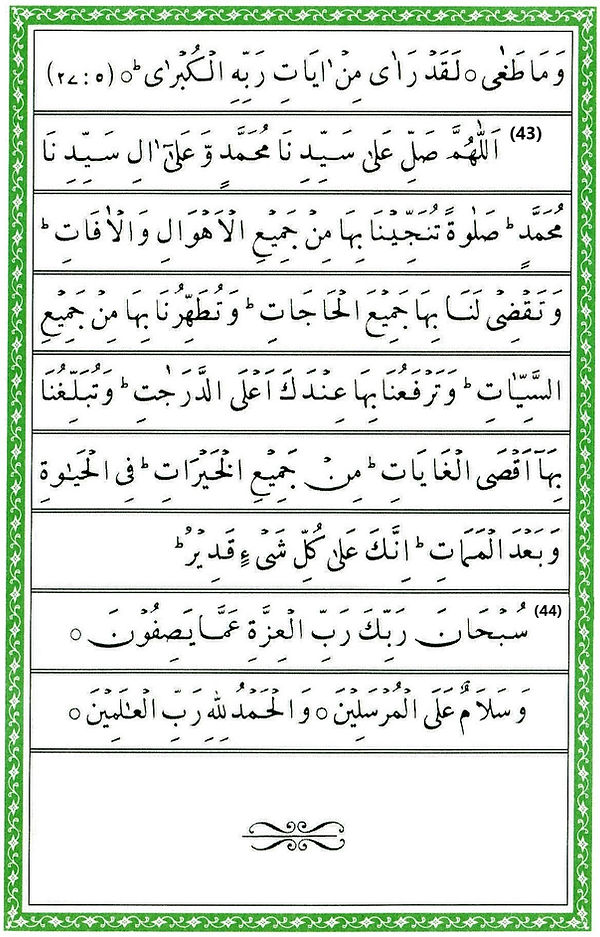 وَمَا طَغٰى ○ لَقَدْ رَاٰى مِنْ اٰيَاتِ رَبِّهِ الْكُبْرٰى ؕ○ (٢٧:٥)
(43) اَللّٰهُمَّ صَلِّ عَلٰى سَيِّدِنَا مُحَمَّدٍ وَّ عَلٰٓى اٰلِ سَيِّدِنَا
مُحَمَّدٍ ؕ صَلٰوةً تُنَجِّيْنَا بِهَا مِنْ جَمِيْعِ الْاَهْوَالِ وَالْاٰفَاتِ ؕ
وَتَقْضِىْ لَنَا بِهَا جَمِيْعَ الْحَاجَاتِ ؕ وَتُطَهِّرُنَا بِهَا مِنْ جَمِيْعِ
السَّيِّاٰتِ ؕ وَتَرْفَعُنَا بِهَا عِنْدَكَ اَعْلَى الدَّرَجٰتِ ؕ وَتُبَلِّغُنَا
بِهَآ اَقْصَى الْغَايَاتِ ؕ مِنْ جَمِيْعِ الْخَيْرَاتِ ؕ فِى الْحَيٰوةِ
وَبَعْدَ الْمَمَاتِ ؕ اِنَّكَ عَلٰى كُلِّ شَىْءٍ قَدِيْرٌ ؕ
(44) سُبْحَانَ رَبِّكَ رَبِّ الْعِزَّةِ عَمَّا يَصِفُوْنَ ○
وَسَلَامٌ عَلَى الْمُرْسَلِيْنَ ○ وَالْحَمْدُ لِلّٰهِ رَبِّ الْعٰلَمِيْنَ ○